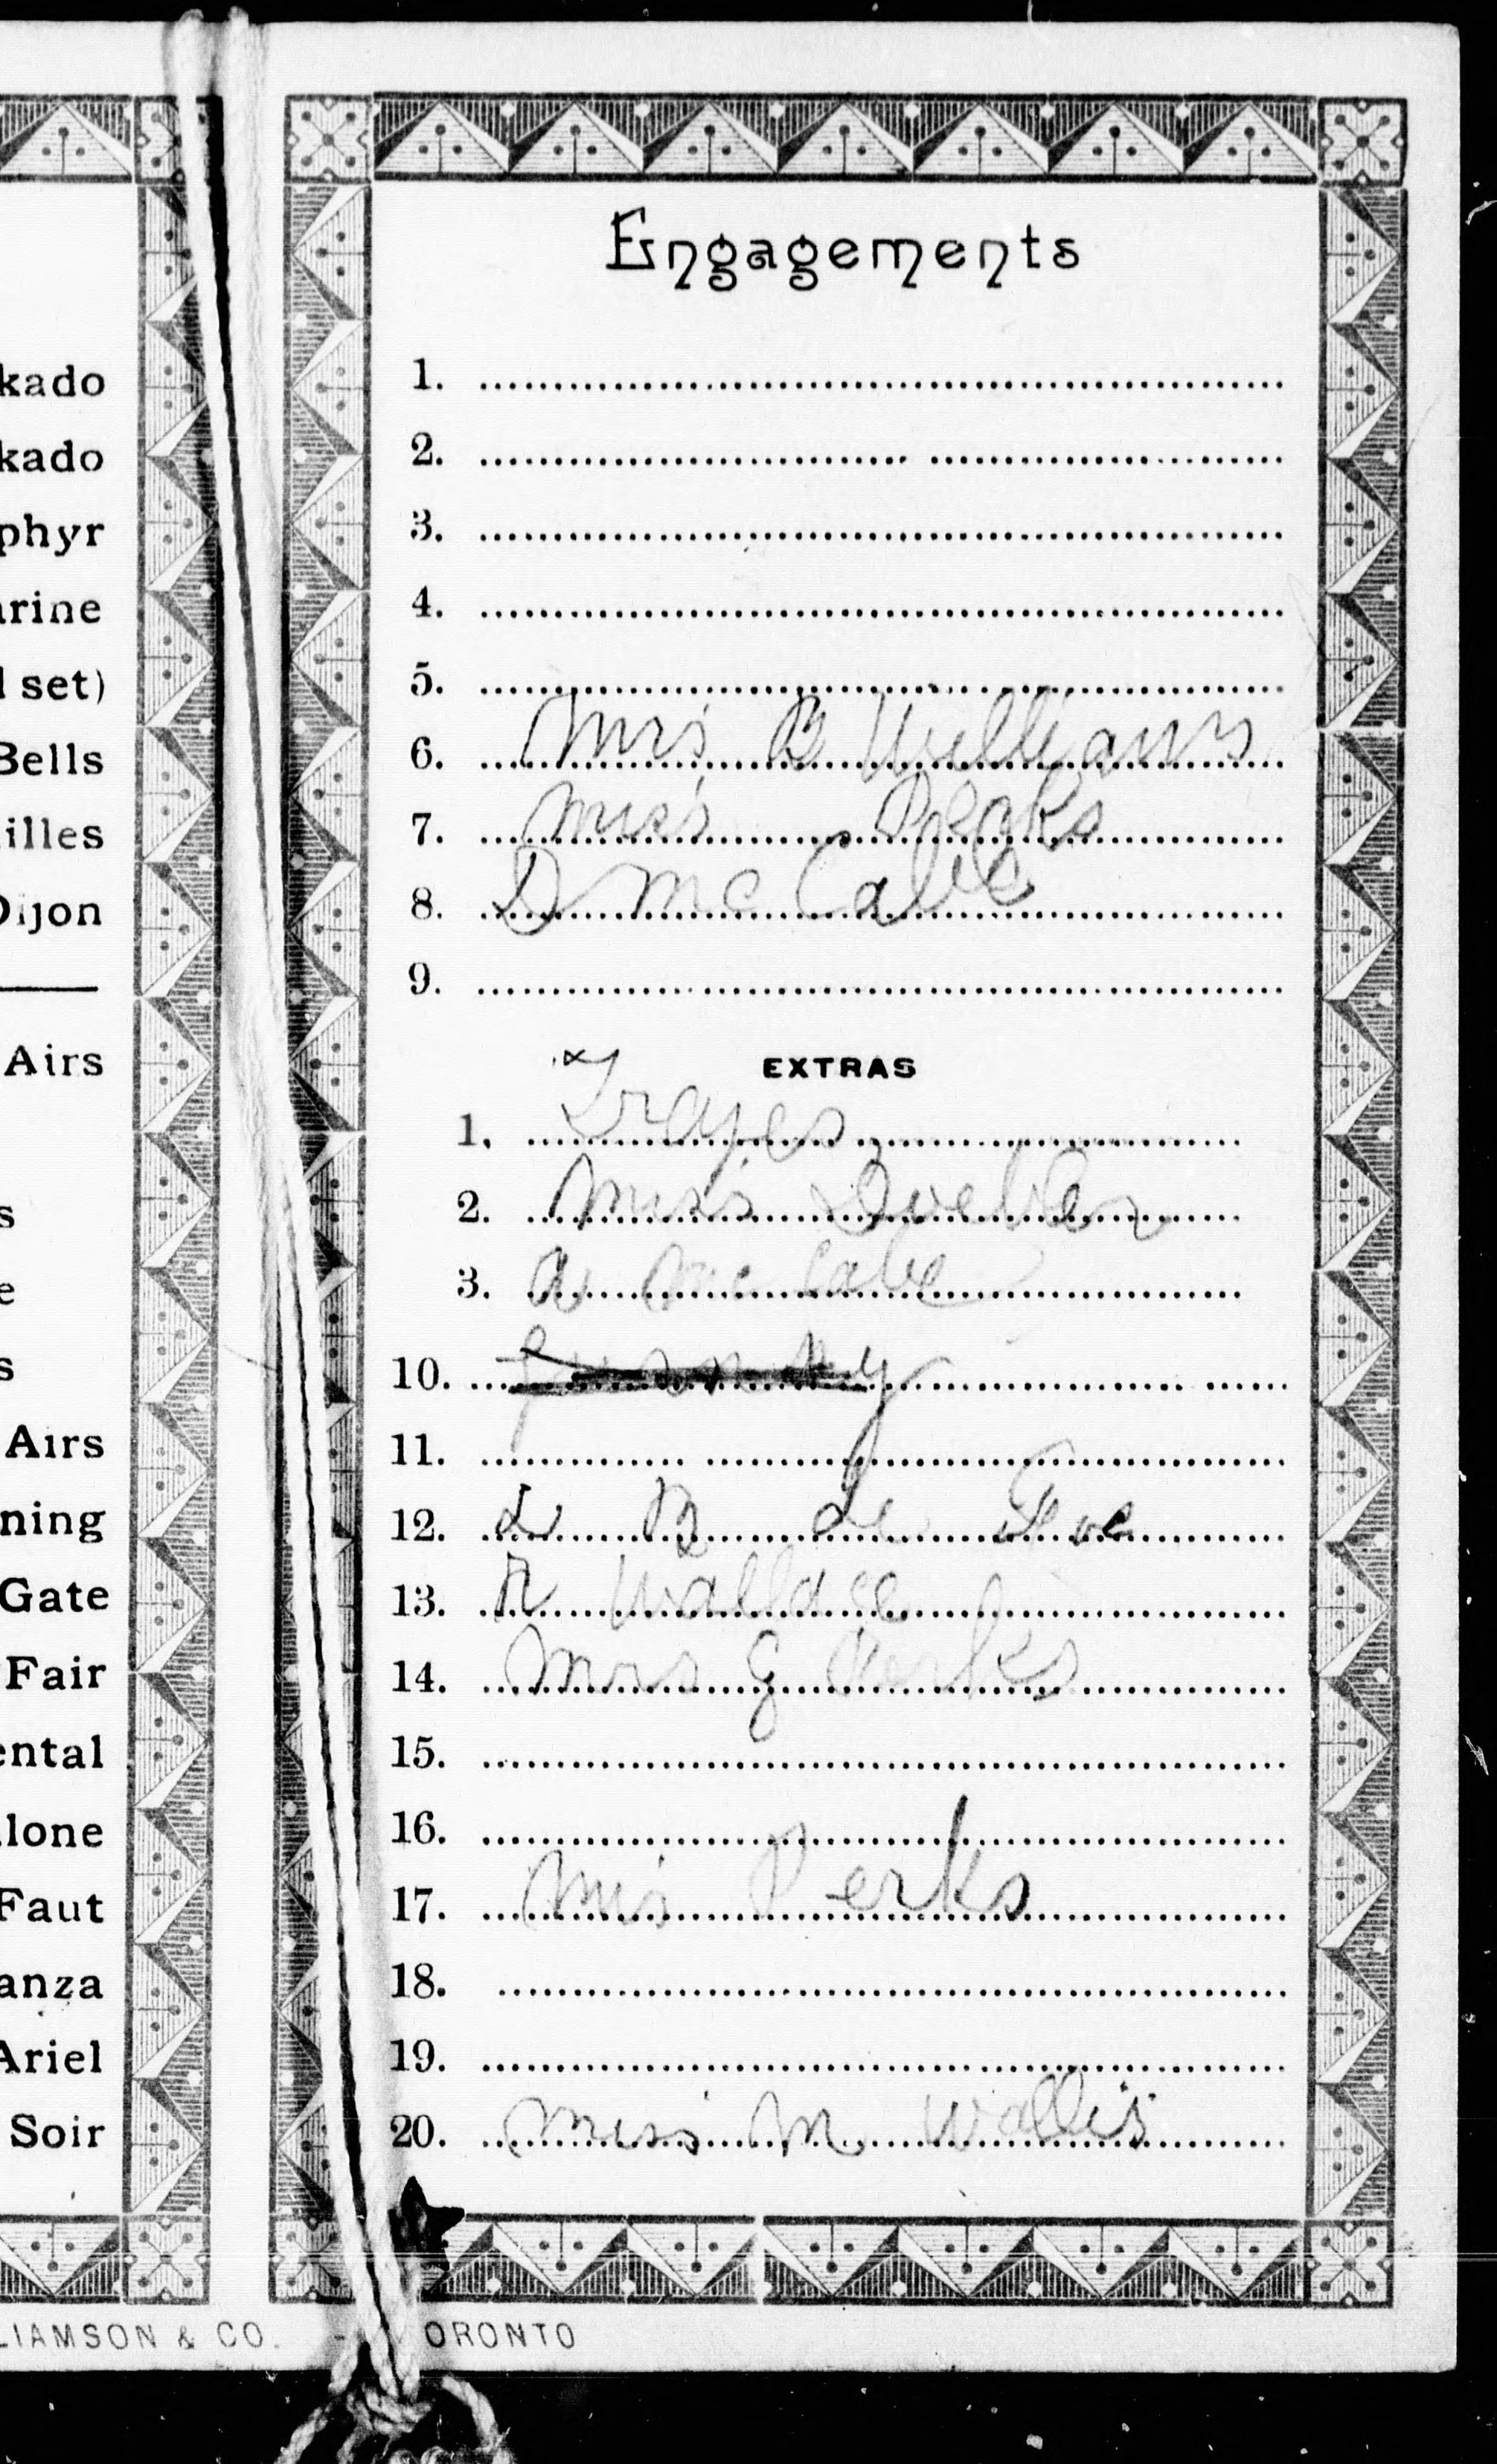 kado
kado
phyr
arine
l set)
Bells
illes
Dijon
Airs
s
e
s
Airs
ning
Gate
Fair
ental
lone
Faut
anza
Ariel
Soir
LIAMSON & CO.
Engagements
1.
2.
3.
4.
5.
6. Mrs B Williams
7. Miss
8. D McCabe
9.
EXTRAS
1.
2. Miss
3. McCabe
10.
11.
12. B
13. R Wallace
14. Mrs G
15.
16.
17. Mis Perks
18.
19.
20. Miss M Wallis
ORONTO